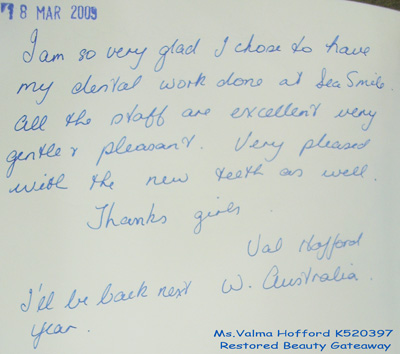 18 MAR 2009
I am so very glad I chose to have
my dental work done at Sea Smile.
All the staff are excellent very
gentle & pleasant. Very pleased
with the new teeth as well.
Thanks girls.
Val Hofford
W. Australia.
I'll be back next
year.
Ms.Valma Hofford K520397
Restored Beauty Gateaway